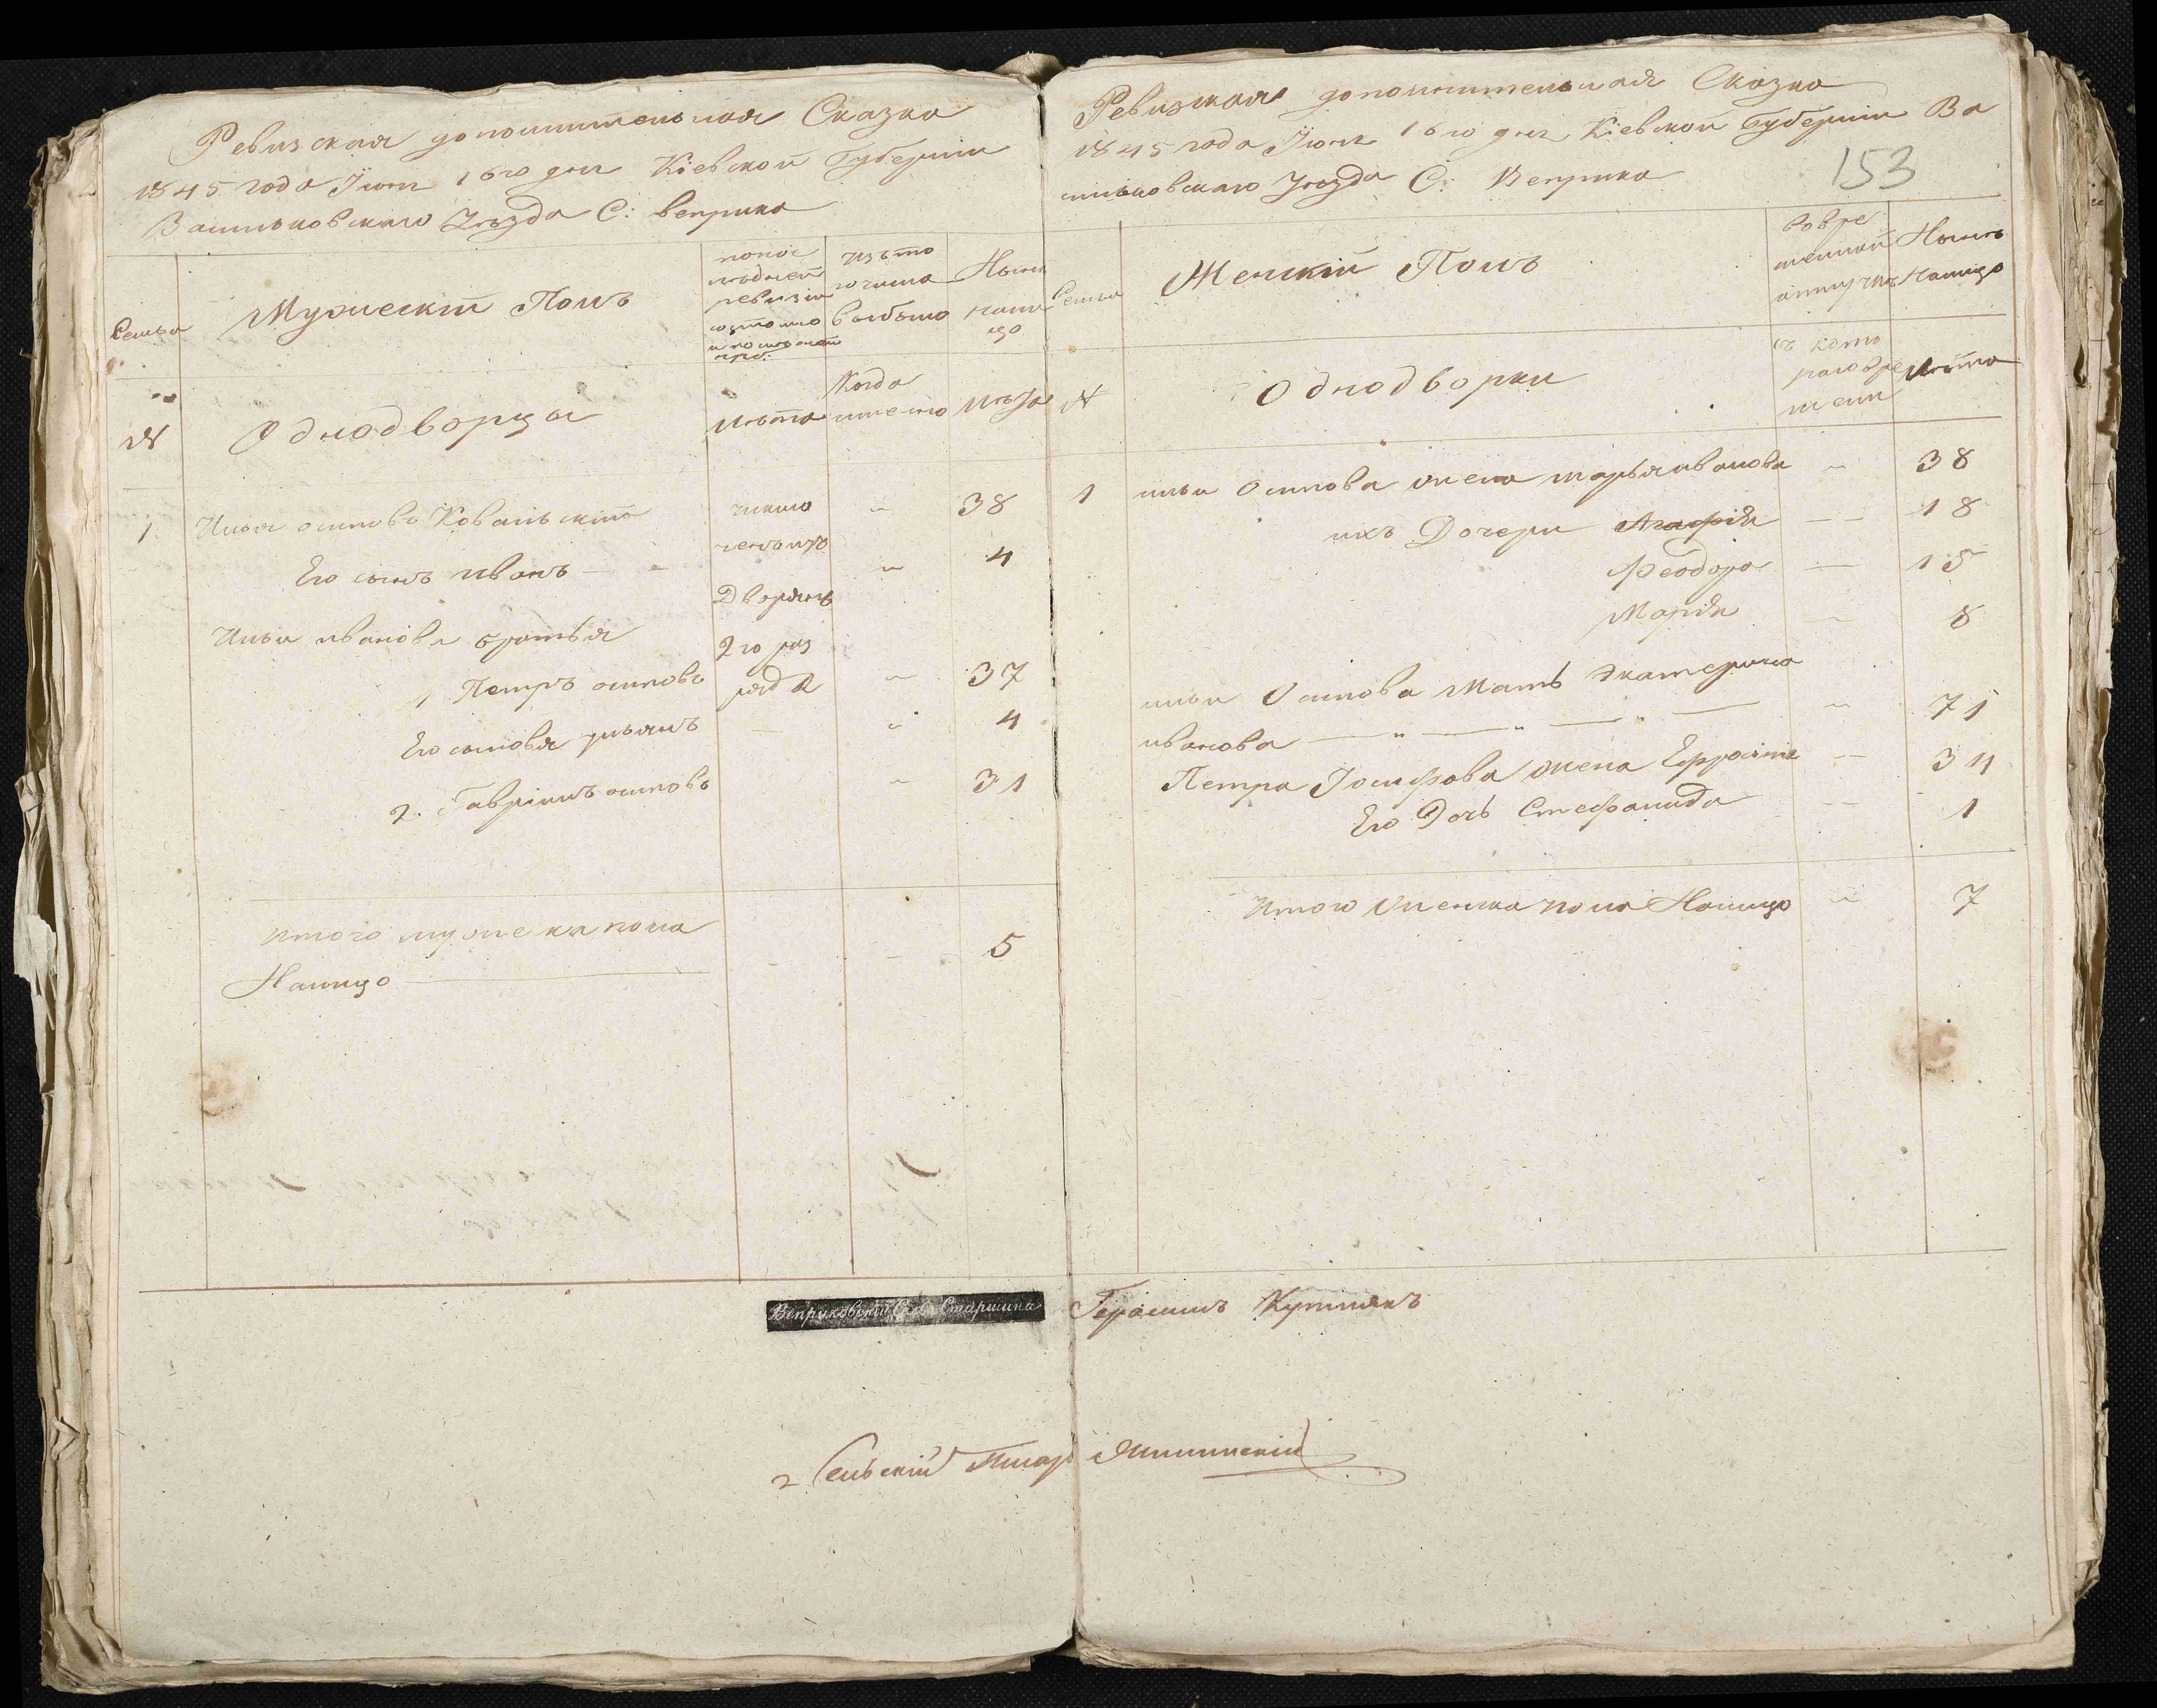 Ревизская дополнительная Сказка
1845 года Июня 16го дня Кіевской Губерніи
Васильковскаго Уѣзда С: веприка
Семьи
Мужескій Полъ
попос
лѣдней
ревизіи
состояло
изъ то
го числа
выбыло
Нынѣ
нали
цо
№
Однодворцы
лѣта
Когда
имено
лѣта
1
Илья осиповъ Ковальскій
числи
"
38
Его сынъ иванъ
"
4
Дворянъ
Ильи иванова братья
2го раз
1 Петръ осиповъ
ряда
"
37
Его сыновья ульянъ
"
4
2. Гавріилъ осиповъ
"
31
Итого мужеска пола
Налицо
5
Ревизская дополнительная Сказка
1845 года Июня 16го дня Кіевской Губерніи Ва
сильковскаго Уѣзда С: Веприка
153
Семьи
Женскій Полъ
вовре
менной
отлучкѣ
Нынѣ
Налицо
№
Однодворки
съ кото
раго вре
мени
лѣта
1
ильи Осипова жена марья иванова
"
38
ихъ Дочери Агафія
18
Феодора
15
Марія
8
ильи Осипова Мать Екатерина
иванова
"
71
Петра Іосифова жена Ефросинія
34
Его Дочь Стефанида
1
Итого женска пола Налицо
"
7
Веприковскій Сель. Старшина Герасимъ
2 Сельскій Писарь